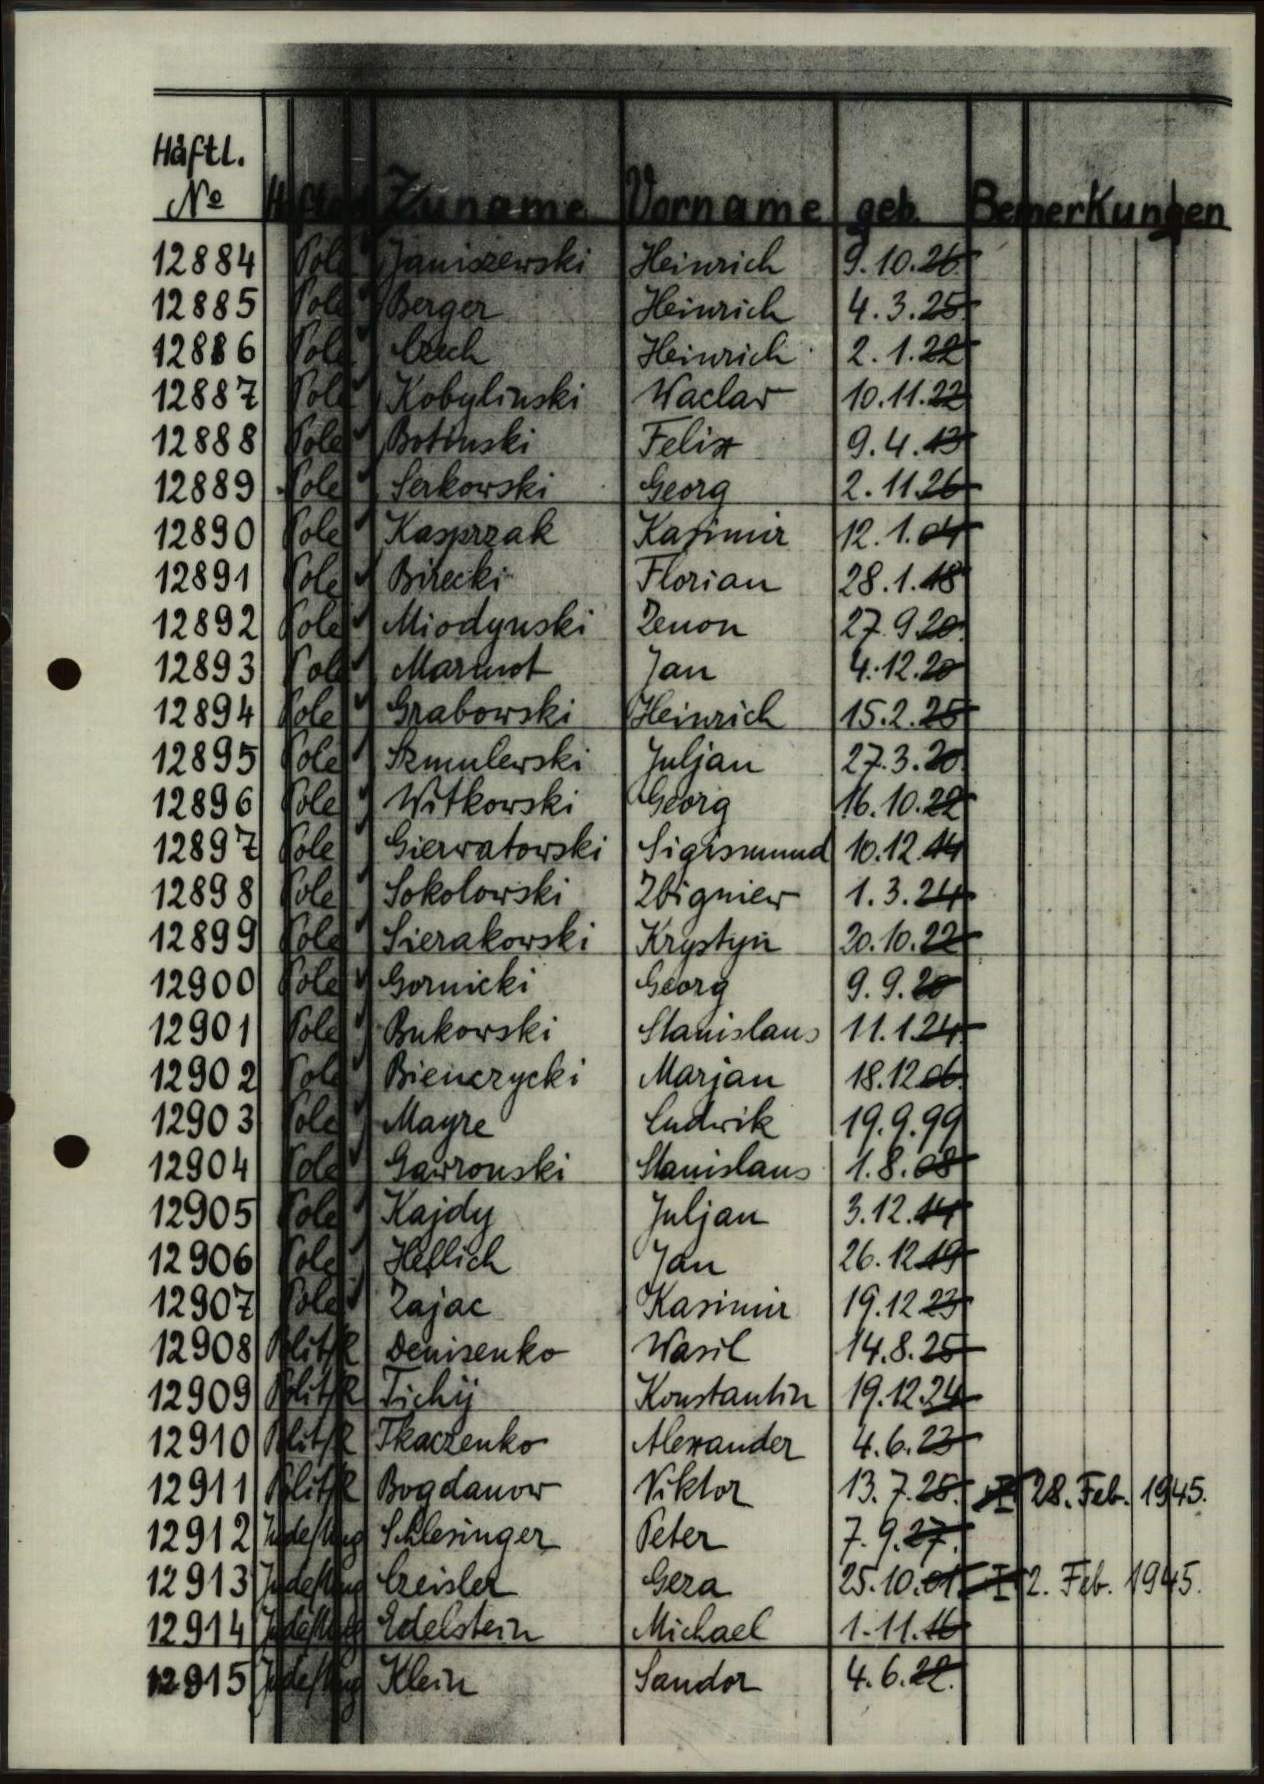 Häftl.
No Haftart Zuname Vorname geb. Bemerkungen
12884 Pole Janiszewski Heinrich 9.10.26
12885 Pole Berger Heinrich 4.3.25
12886 Pole Czech Heinrich 2.1.22
12887 Pole Kobylinski Waclaw 10.11.22
12888 Pole Botinski Felix 9.4.13
12889 Pole Serkowski Georg 2.11.26
12890 Pole Kasprzak Kasimir 12.1.04
12891 Pole Birecki Florian 28.1.18
12892 Pole Miodynski Zenon 27.9.20
12893 Pole Marmot Jan 4.12.20
12894 Pole Grabowski Heinrich 15.2.25
12895 Pole Szmulewski Juljan 27.3.20
12896 Pole Witkowski Georg 16.10.22
12897 Pole Gierwatowski Sigismund 10.12.14
12898 Pole Sokolowski Zbigniew 1.3.24
12899 Pole Sierakowski Krystyn 20.10.22
12900 Pole Gornicki Georg 9.9.20
12901 Pole Bukowski Stanislaus 11.1.24
12902 Pole Bienczycki Marjan 18.12.06
12903 Pole Mayre Ludwik 19.9.99
12904 Pole Gawronski Stanislaus 1.8.08
12905 Pole Kajdy Juljan 3.12.14
12906 Pole Heflich Jan 26.12.19
12907 Pole Zajac Kasimir 19.12.23
12908 Polit/R Denisenko Wasil 14.8.25
12909 Polit/R Tichij Konstantin 19.12.24
12910 Polit/R Tkaczenko Alexander 4.6.23
12911 Polit/R Bogdanow Viktor 13.7.25. 28. Feb. 1945.
12912 Jude/Ung Schlesinger Peter 7.9.27.
12913 Jude/Ung Czeisler Geza 25.10.01. 2. Feb. 1945.
12914 Jude/Ung Edelstein Michael 1.11.16
12915 Jude/Ung Klein Sandor 4.6.22.